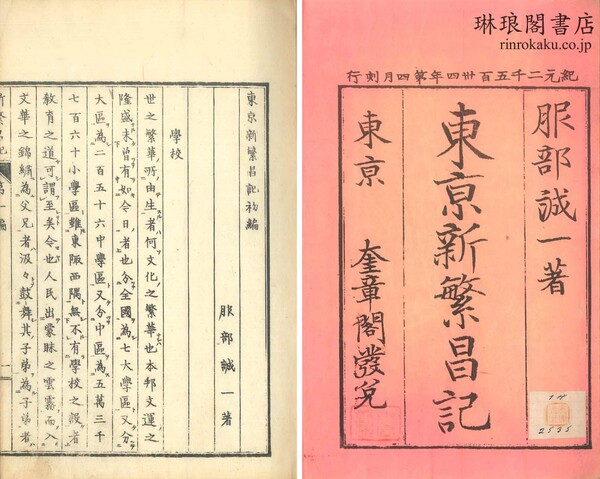 琳琅閣書店
rinrokaku.co.jp
紀元二千五百卅四年第四月刻行
服部誠一著
東京新繁昌記
東京　奎章閣發兌
2535
東京新繁昌記初編
服部誠一著
學校
世之繁華所由生者何文化之繁華也本邦文運之
隆盛未曽有如今日者也分全國為七大學區又分
大區為二百五十六中學區又分中區為五萬三千
七百六十小學區雖東陬西隅無不有學校之設者
教育之道可謂至矣令也人民出蒙昧之雲霧而入
文華之錦繡為父兄者汲々鼓舞其子弟為子弟者
繁昌記